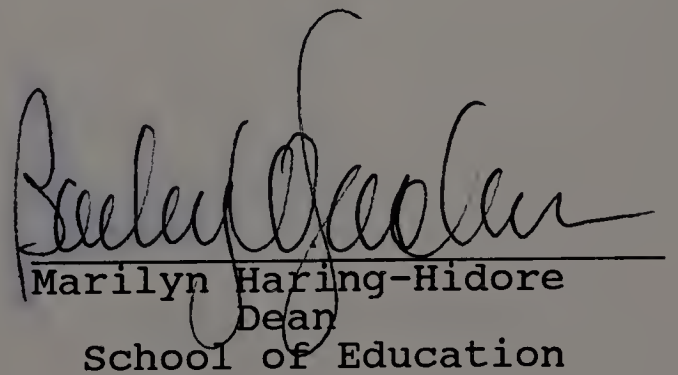 Marilyn Haring-Hidore
Dean
School of Education